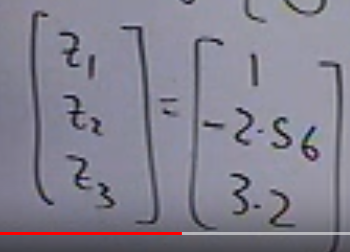 [z₁ z₂ z₃] = [1 -2.56 3.2]